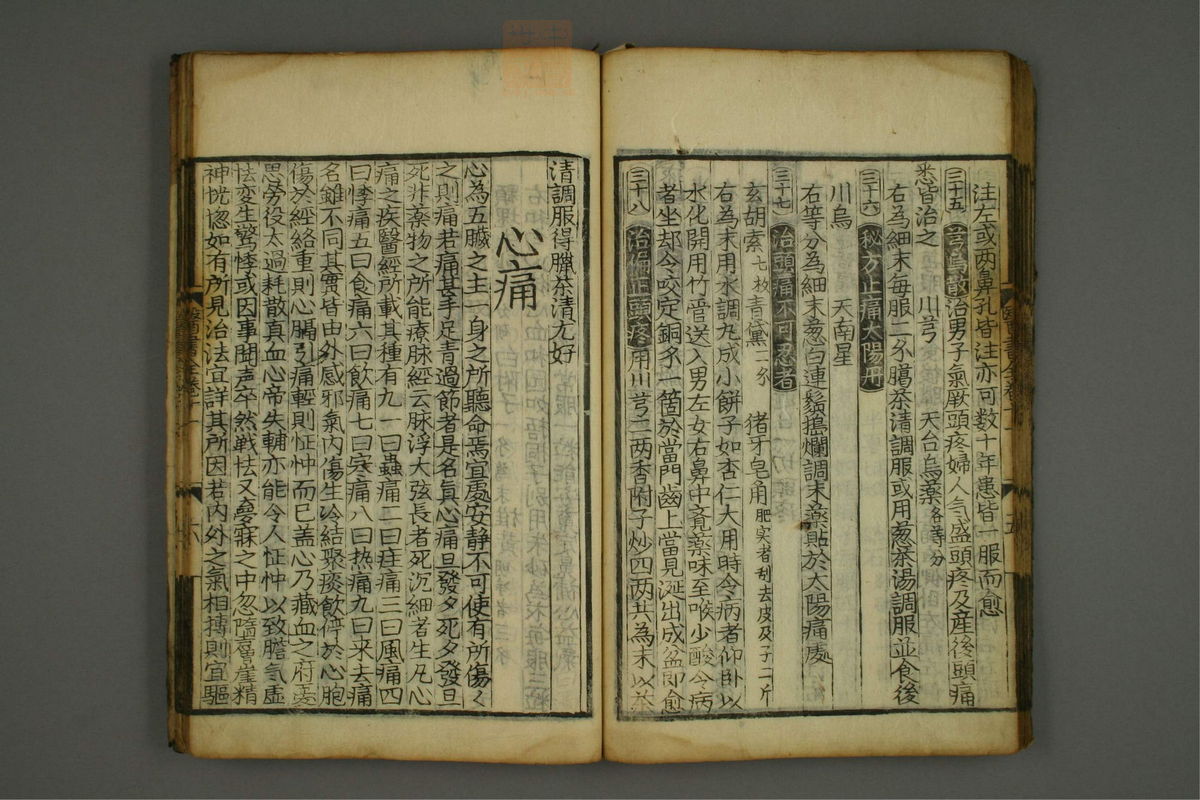 注左或两鼻孔皆注亦可数十年患皆一服而愈
三十五 芎烏散 治男子氣厥頭疼婦人气盛頭疼乃産後頭痛
悉皆治之 川芎 天台烏薬 各等分
右為細末毎服二分臈茶清調服或用葱茶湯調服並食後
三十六 秘方止痛太陽丹
川烏 天南星
右等分為細末葱白連鬚搗爛調末薬貼於太陽痛處
三十七 治頭痛不可忍者
玄胡索 七枚 青黛 二分 猪牙皂角 肥实者刮去皮及子二斤
右為末用水調丸成小餅子如杏仁大用時令病者仰卧以
水化開用竹管送入男左女右鼻中竟薬味至喉少酸令病
者坐却令咬定銅分一箇於當門齒上當見涎出成盆即愈
三十八 治偏正頭疼 用川芎二两香附子炒四两共為末以茶
清調服得臘茶清尤好
心痛
心為五臟之主一身之所聽命焉宜處安静不可使有所傷く
之則痛若痛甚手足青過節者是名眞心痛旦發夕死夕發旦
死非薬物之所能療脉經云脉浮大弦長者死沉細者生凡心
痛之疾醫經所載其種有九一曰蟲痛二曰疰痛三曰風痛四
曰悸痛五曰食痛六曰飲痛七曰寒痛八曰热痛九曰来去痛
名雖不同其實皆由外感邪氣内傷生冷結聚痰飲停於心胞
傷於經絡重則心膈引痛輕則怔忡而已盖心乃藏血之府憂
思劳役太過耗散真血心帝失輔亦能令人怔忡以致膽气虚
怯变生驚悸或因事聞声卒然戦怯又夢寐之中忽墮層崖精
神恍惚如有所見治法宜詳其所因若内外之氣相搏則宜驅